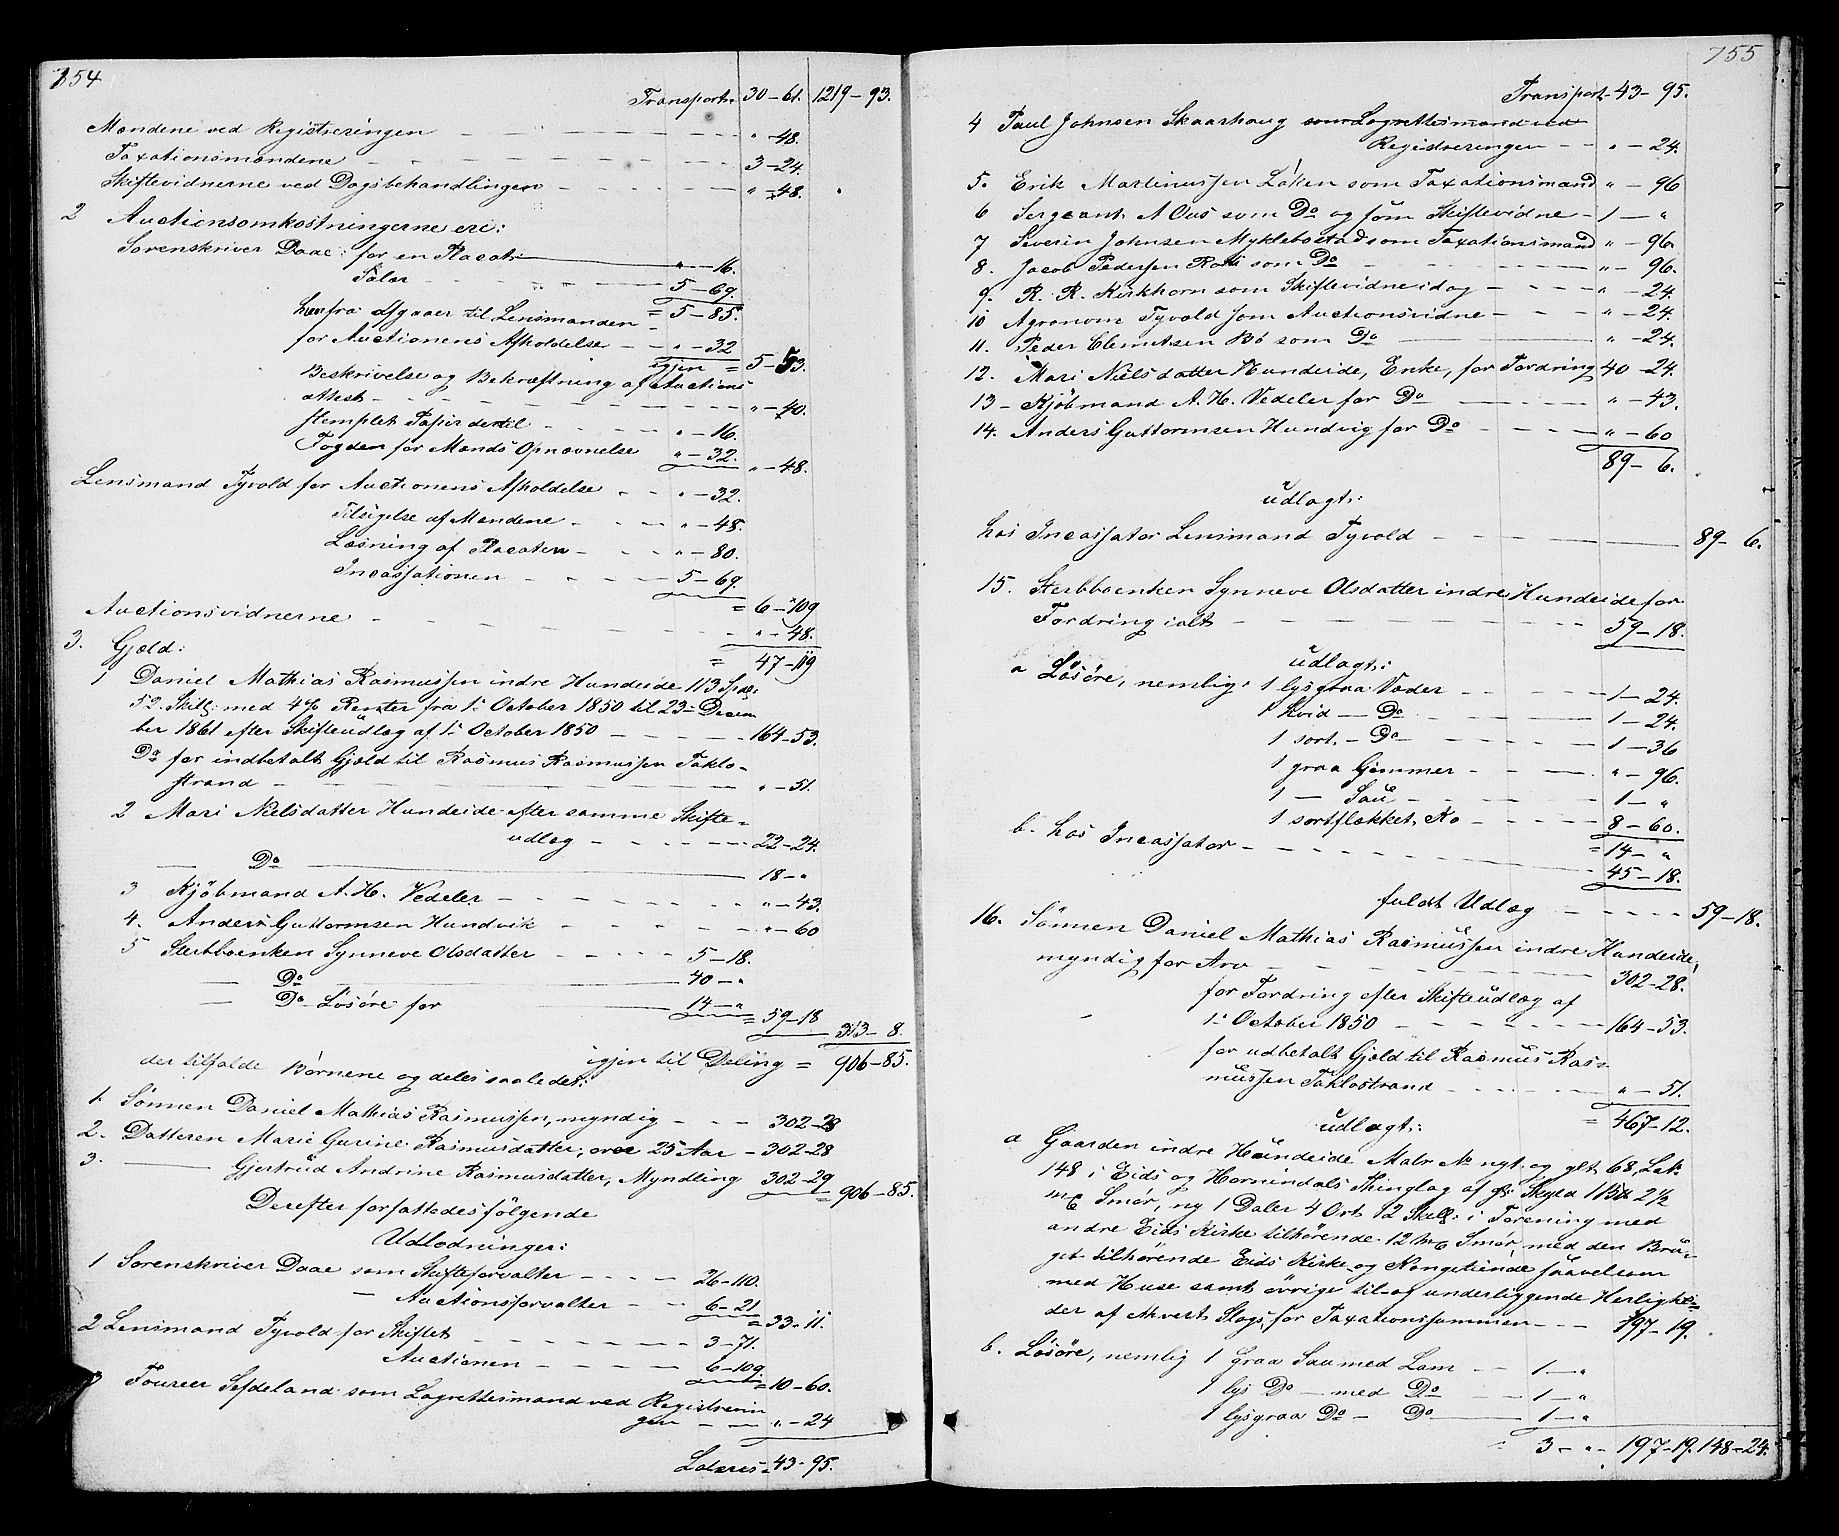 754
Transport. 30-61. 1219-93.
Mændene ved Registreringen " -48.
Taxationsmændene 3-24.
Skiftevidnerne ved Dagsbehandlingen " -48.
2 Auctionsomkostningerne ere:
Sorenskriver Daae: for en Placat " -16.
Salær 5-69.
= 5-85.
herfra afgaaer til Lensmanden
for Auctionens Afholdelse " -32
igjen = 5-53.
Beskrivelse og Bekræftning af Auctions
attest " -40.
stemplet Papir dertil " -16.
Fogden for Mænds Opnævnelse " -32.
" -48.
Lensmand Tyvold for Auctionens Afholdelse " -32.
Tilsigelse af Mændene " -48.
Læsning af Placaten " -80.
Incassationen 5-69.
= 6-109
Auctionsvidnerne " -48.
= 47-119
3. Gjæld:
1 Daniel Mathias Rasmussen indre Hundeide 113 Spd:
52 Skill: med 4% Renter fra 1ste October 1850 til 23de Decem
ber 1861 efter Skifteudlæg af 1ste October 1850 164-53.
Do for indbetalt Gjæld til Rasmus Rasmussen Taklo-
strand " -51.
2 Mari Nielsdatter Hundeide efter samme Skifte-
udlæg 22-24.
— Do 18-"
3 Kjøbmand A. H. Vedeler " -43.
4. Anders Guttormsen Hundvik " -60
5 Sterbboenken Synneve Olsdatter 5-18.
— Do 40-"
— Do Løsøre for 14-"
= 59-18
313-8.
igjen til Deling = 906-85.
der tilfalde Børnene og deles saaledes:
1. Sønnen Daniel Mathias Rasmussen, myndig 302-28
2. Datteren Marie Gurine Rasmusdatter, over 25 Aar - 302-28
3. — Gjertrud Andrine Rasmusdatter, Myndling 302-29
= 906-85.
Derefter forfattedes følgende
Udlodninger:
1 Sorenskriver Daae som Skifteforvalter 26-110.
— Auctionsforvalter 6-21
= 33-11.
2 Lensmand Tyvold for Skiftet 3-71.
Auctionen 6-109
= 10-60.
3 Foureer Sefdeland som Lagrettesmand ved Registrerin
gen " -24
Lateris 43-95.
755
Transport 43-95.
4 Paul Johnsen Skaarhaug som Lagrettesmand ved
Registreringen " -24.
5. Erik Martinussen Løken som Taxationsmand " -96
6 Sergeant A Aas som Do og som Skiftevidne 1-"
7 Severin Johnsen Myklebostad som Taxationsmand " -96
8. Jacob Pedersen Roti som Do " -96.
9. R. R. Kirkhorn som Skiftevidne idag " -24.
10 Agronom Tyvold som Auctionsvidne " -24.
11. Peder Clemetsen Bø som Do " -24.
12. Mari Nielsdatter Hundeide, Enke, for Fordring 40-24.
13 - Kjøbmand A. H. Vedeler for Do " -43.
14. Anders Guttormsen Hundvig for Do " -60
89-6.
udlagt:
hos Incassator Lensmand Tyvold 89-6.
15. Sterbboenken Synneve Olsdatter indre Hundeide for
Fordring ialt 59-18.
udlagt:
a Løsøre, nemlig: 1 lysgraa Væder 1-24.
1 hvid — Do 1-24.
1 sort. - Do 1-36
1 graa Gimmer " -96.
1 — Sau 1-"
1 sortflekket Ko 8-60.
= 14-"
b. hos Incassator 45-18.
fuldt Udlæg 59-18.
16. Sønnen Daniel Mathias Rasmussen indre Hundeide,
myndig for Arv 302-28.
for Fordring efter Skifteudlæg af
1ste October 1850 164-53.
for udbetalt Gjæld til Rasmus Ras-
mussen Taklostrand " -51.
= 467-12.
udlagt:
a Gaarden indre Hundeide Matr No nyt og glt 68, Løb.
148 i Eids og Hornindals Thinglag af gl. Skyld 1 Pd 2 1/2
mk Smør, ny 1 Daler 4 Ort 12 Skill: i Forening med
andre Eids Kirke tilhørende 12 mk Smør, med den Bru-
get tilhørende Eids Kirke og Kongetiende saavelsom
med Huse samt øvrige til og underliggende Herlighe-
der af hvert Slags, for Taxationssummen 197-19.
b. Løsøre, nemlig 1 Graa Sau med Lam 1-"
1 lys Do — med Do 1-"
1 lysgraa Do - Do 1-"
3-" 197-19. 148-24.